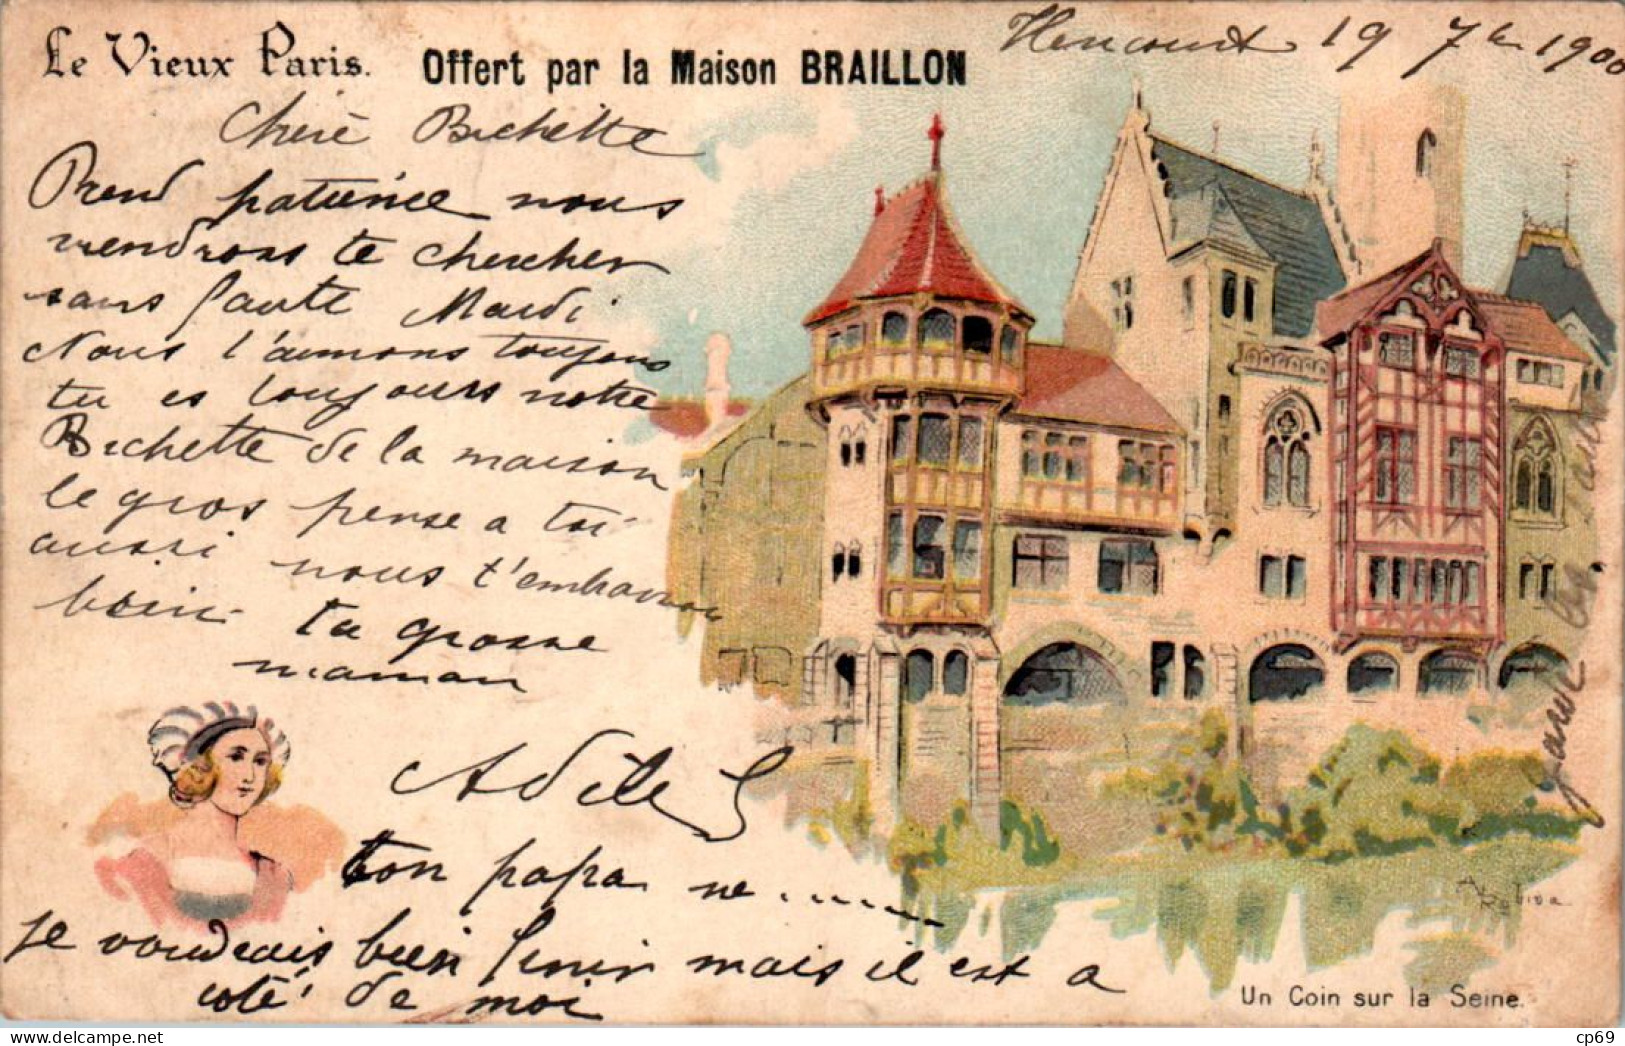 Le Vieux Paris. Offert par la Maison BRAILLON
19 7bre 1900
Chère Bichette
Prend patience nous
viendrons te chercher
sans faute Mardi
Nous t'aimons toujours
tu es toujours notre
Bichette de la maison
le gros pense a toi
aussi nous t'embrassons
bien ta grosse
maman
Adile S
ton papa ne ........
je voudrais bien finir mais il est a
coté de moi
A. Robida
Un Coin sur la Seine.
delcampe.net
cp69